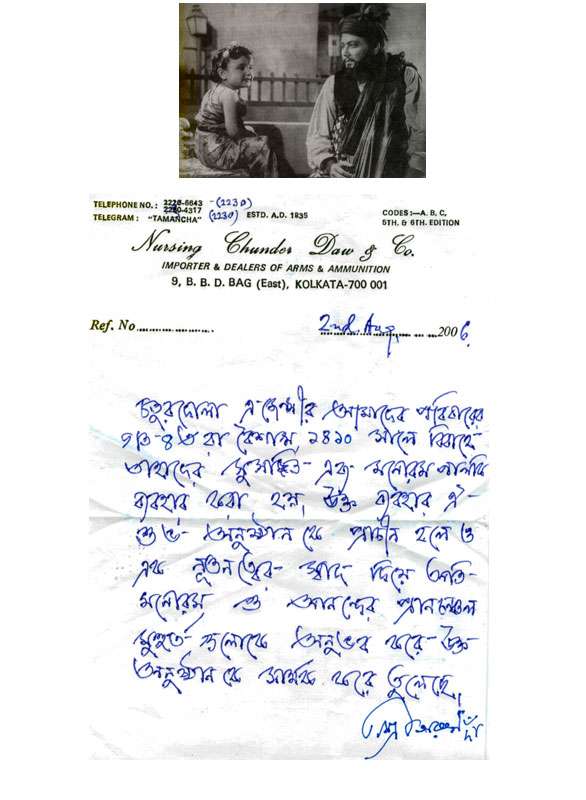 TELEPHONE NO. : 2220-6643 - (2230)
2220-4317 (2230)
TELEGRAM : "TAMANCHA" ESTD. A.D. 1835
CODES :—A. B. C.
5TH. & 6TH. EDITION
Nursing Chunder Daw & Co.
IMPORTER & DEALERS OF ARMS & AMMUNITION
9, B. B. D. BAG (East), KOLKATA-700 001
Ref. No. 2nd. Aug, 2006.
চতুরদোলা এজেন্সীর আমাদের পরিবারের
গত ৪ঠা বৈশাখ, ১৪১০ সালে বিবাহে
তাহাদের সুসজ্জিত এক মনোরম পালকি
ব্যবহার করা হয়, উক্ত ব্যবহার ঐ
শুভ অনুষ্ঠান কে প্রাচীন হলে ও
এক নূতনত্বের স্বাদ দিয়ে অতি
মনোরম ও আনন্দের প্রানচঞ্চল
মুহুর্ত গুলোকে অনুভব করে উক্ত
অনুষ্ঠান কে সার্থক করে তুলেছে,
দাঁ